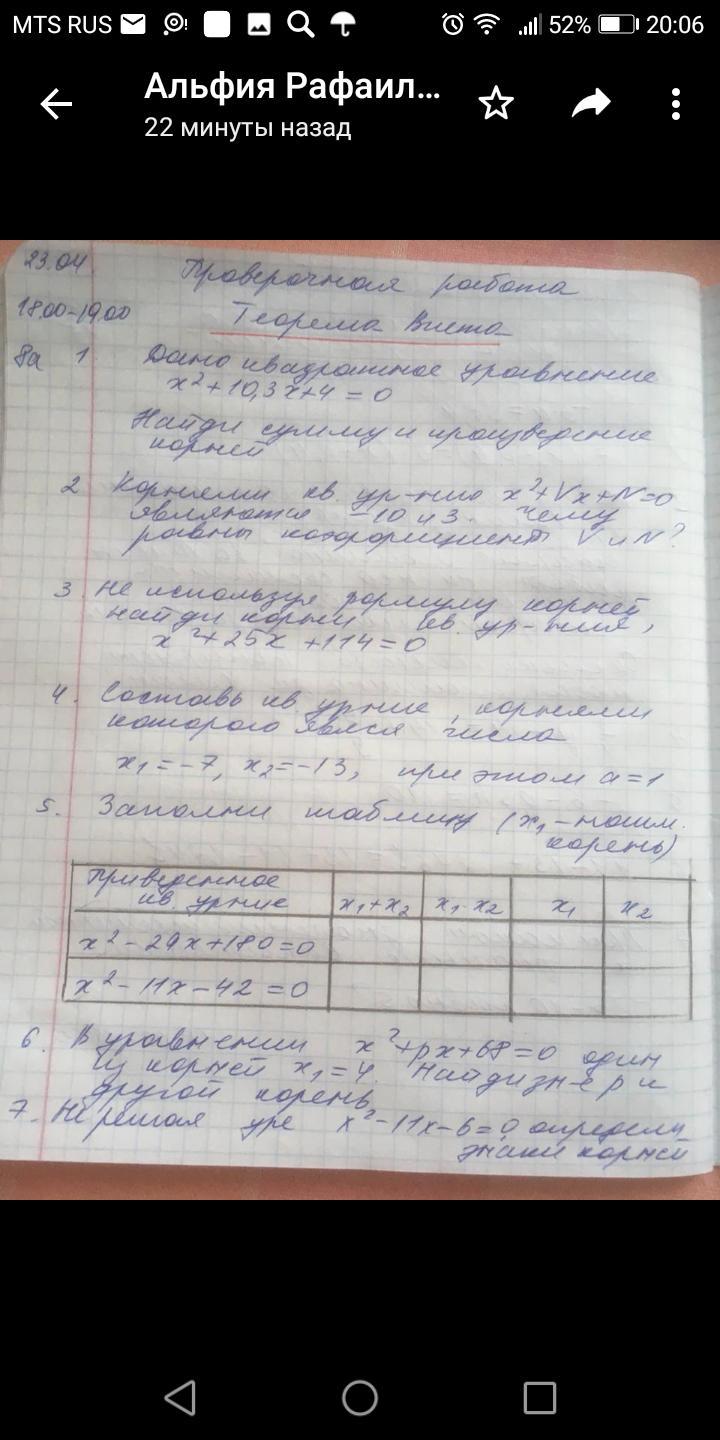 MTS RUS 52% 20:06
Альфия Рафаил...
22 минуты назад
23.04. Проверочная работа
18.00-19.00 Теорема Виета
8а 1 Дано квадратное уравнение
x²+10,3x+4=0
Найди сумму и произведение
корней
2 Корнями кв. ур-ния x²+Vx+N=0
являются -10 и 3. Чему
равны коэффициенты V и N?
3 Не используя формулу корней,
найди корни кв. ур-ния,
x²+25x+114=0
4. Составь кв. урние, корнями
которого явлся числа
x₁=-7, x₂=-13, при этом a=1
5. Заполни таблицу (x₁-наим.
корень)
Приведенное
кв. урние x₁+x₂ x₁·x₂ x₁ x₂
x²-29x+180=0
x²-11x-42=0
6. В уравнении x²+px+68=0 один
из корней x₁=4. Найди зн-е p и
другой корень
7. Не решая уре x²-11x-6=0 определи
знаки корней